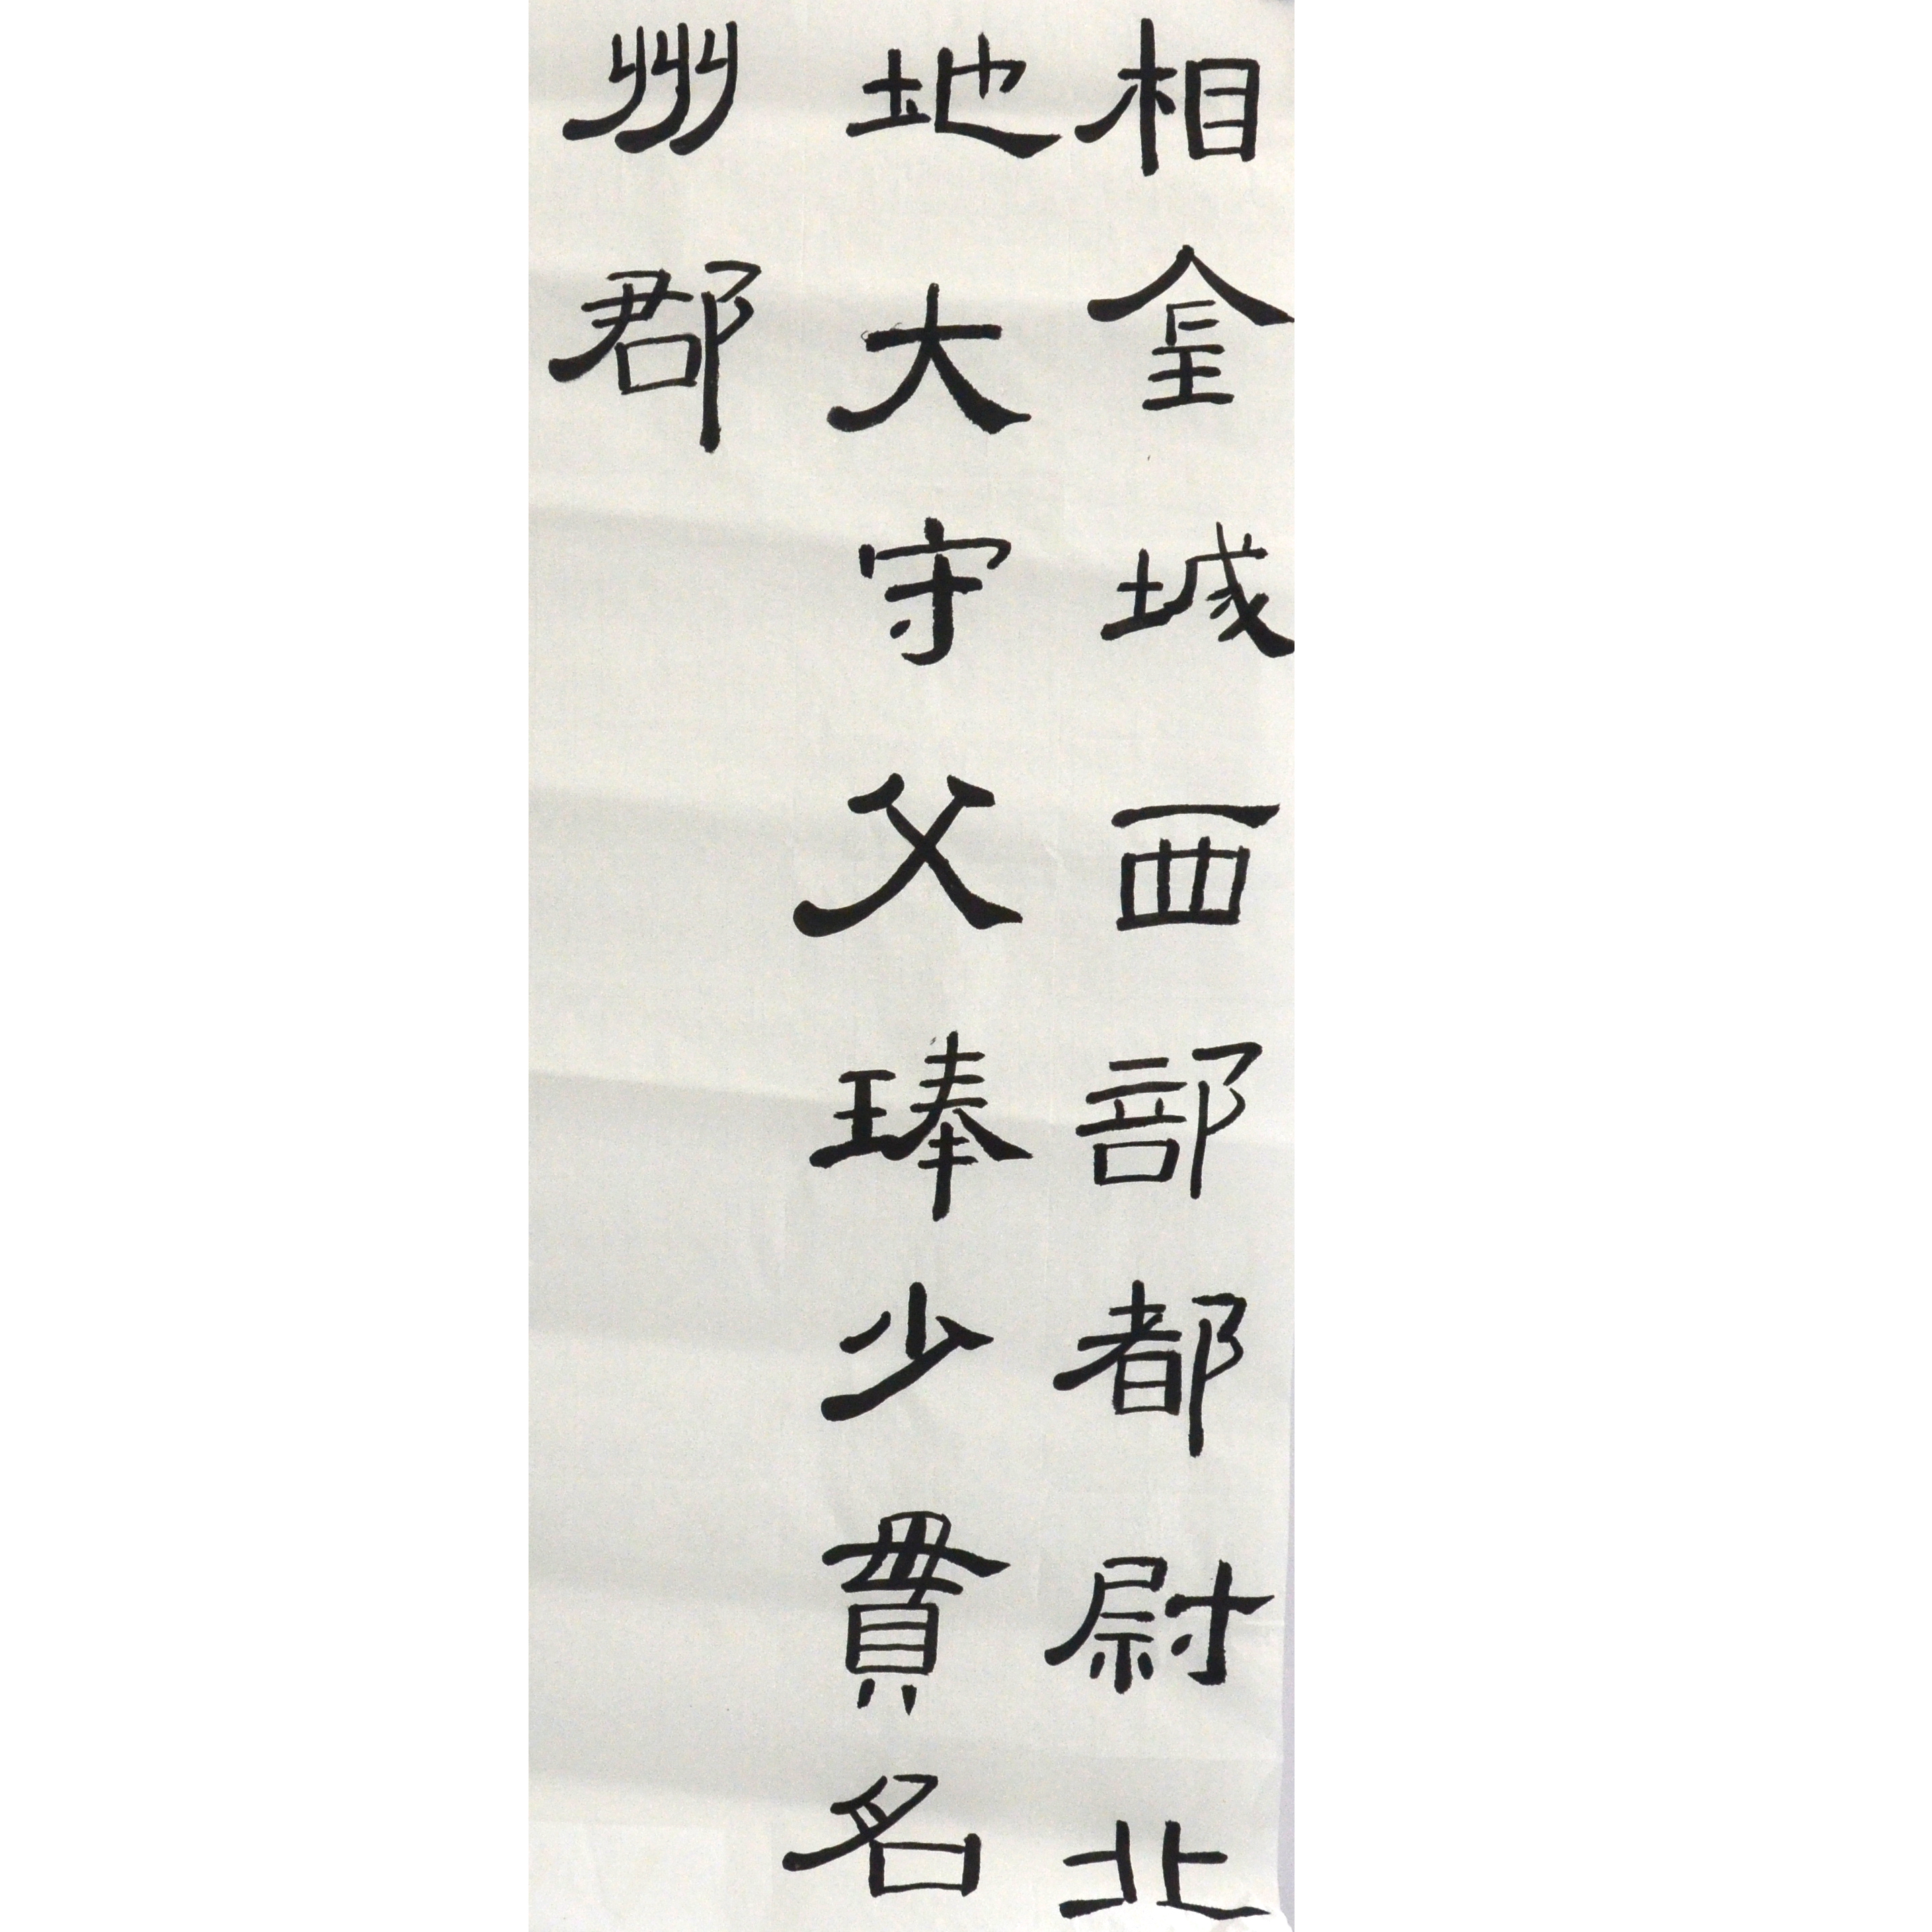 相金城西部都尉北
地大守父琫少貫名
州郡